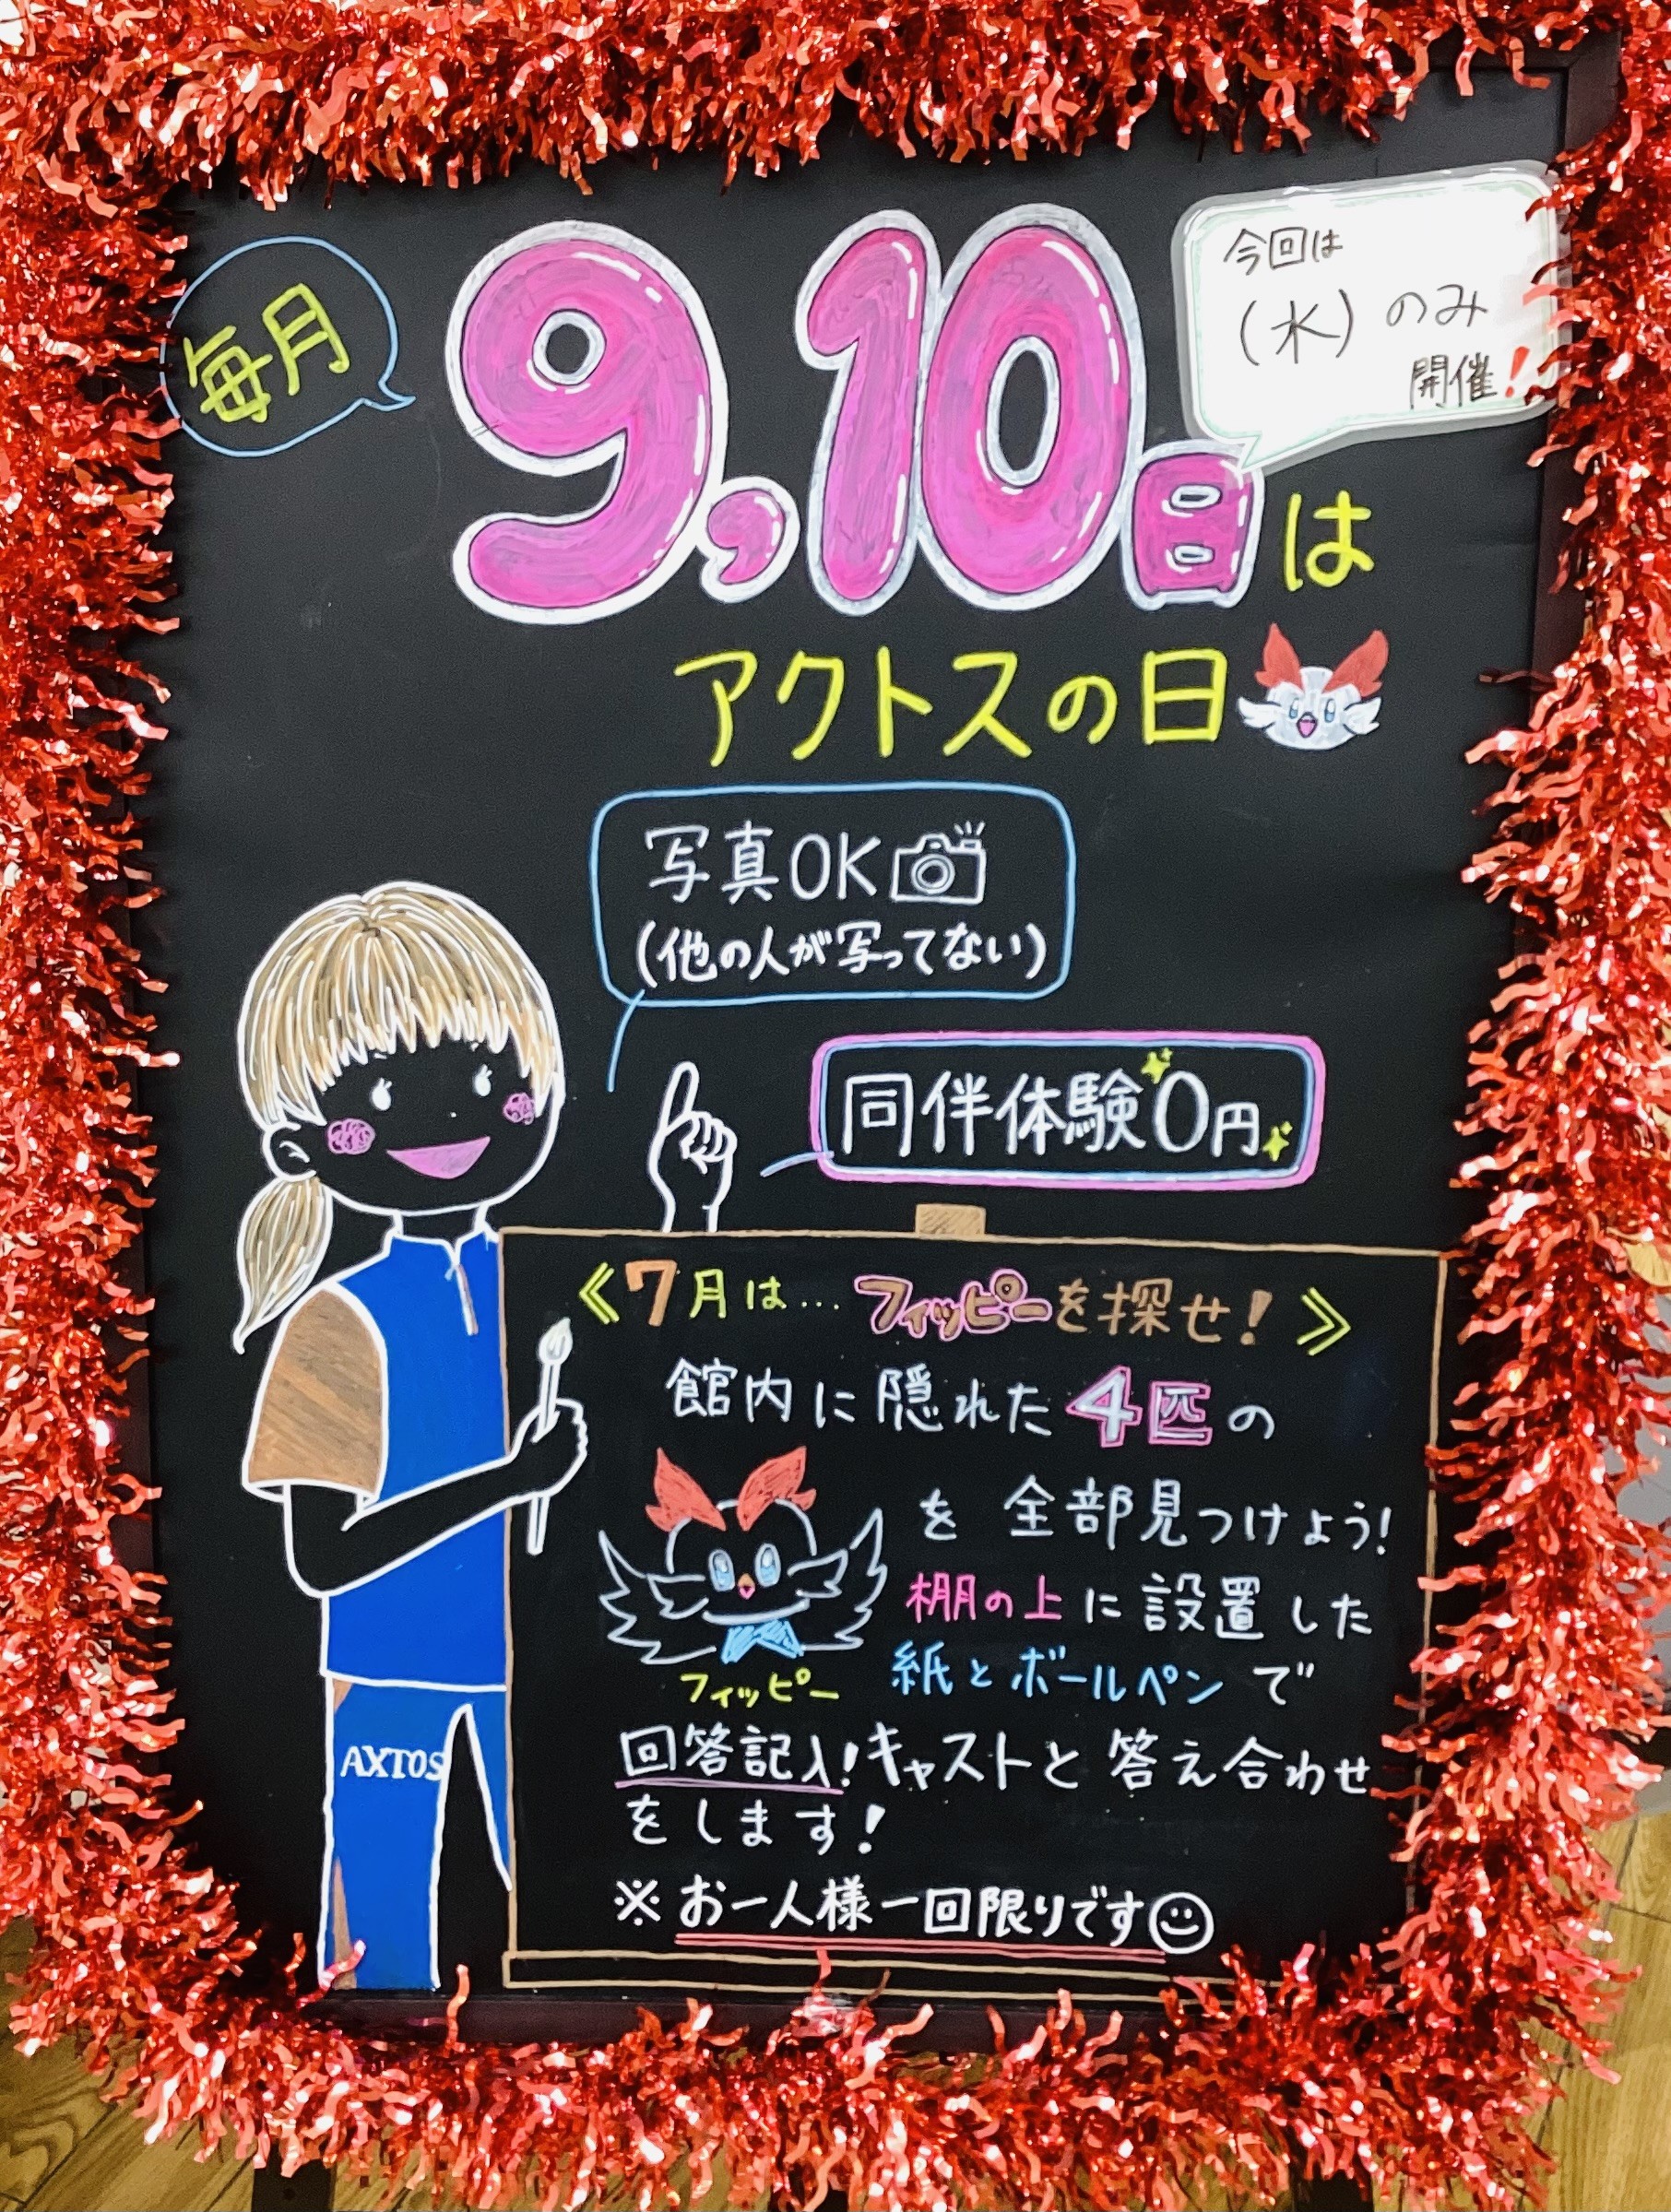 毎月
9,10日は
今回は
(水)のみ
開催!
アクトスの日
写真OK
(他の人が写ってない)
同伴体験0円
《7月は…フィッピーを探せ!》
館内に隠れた4匹の
を全部見つけよう!
フィッピー
棚の上に設置した
紙とボールペンで
回答記入!キャストと答え合わせ
をします!
※お一人様一回限りです
AXTOS